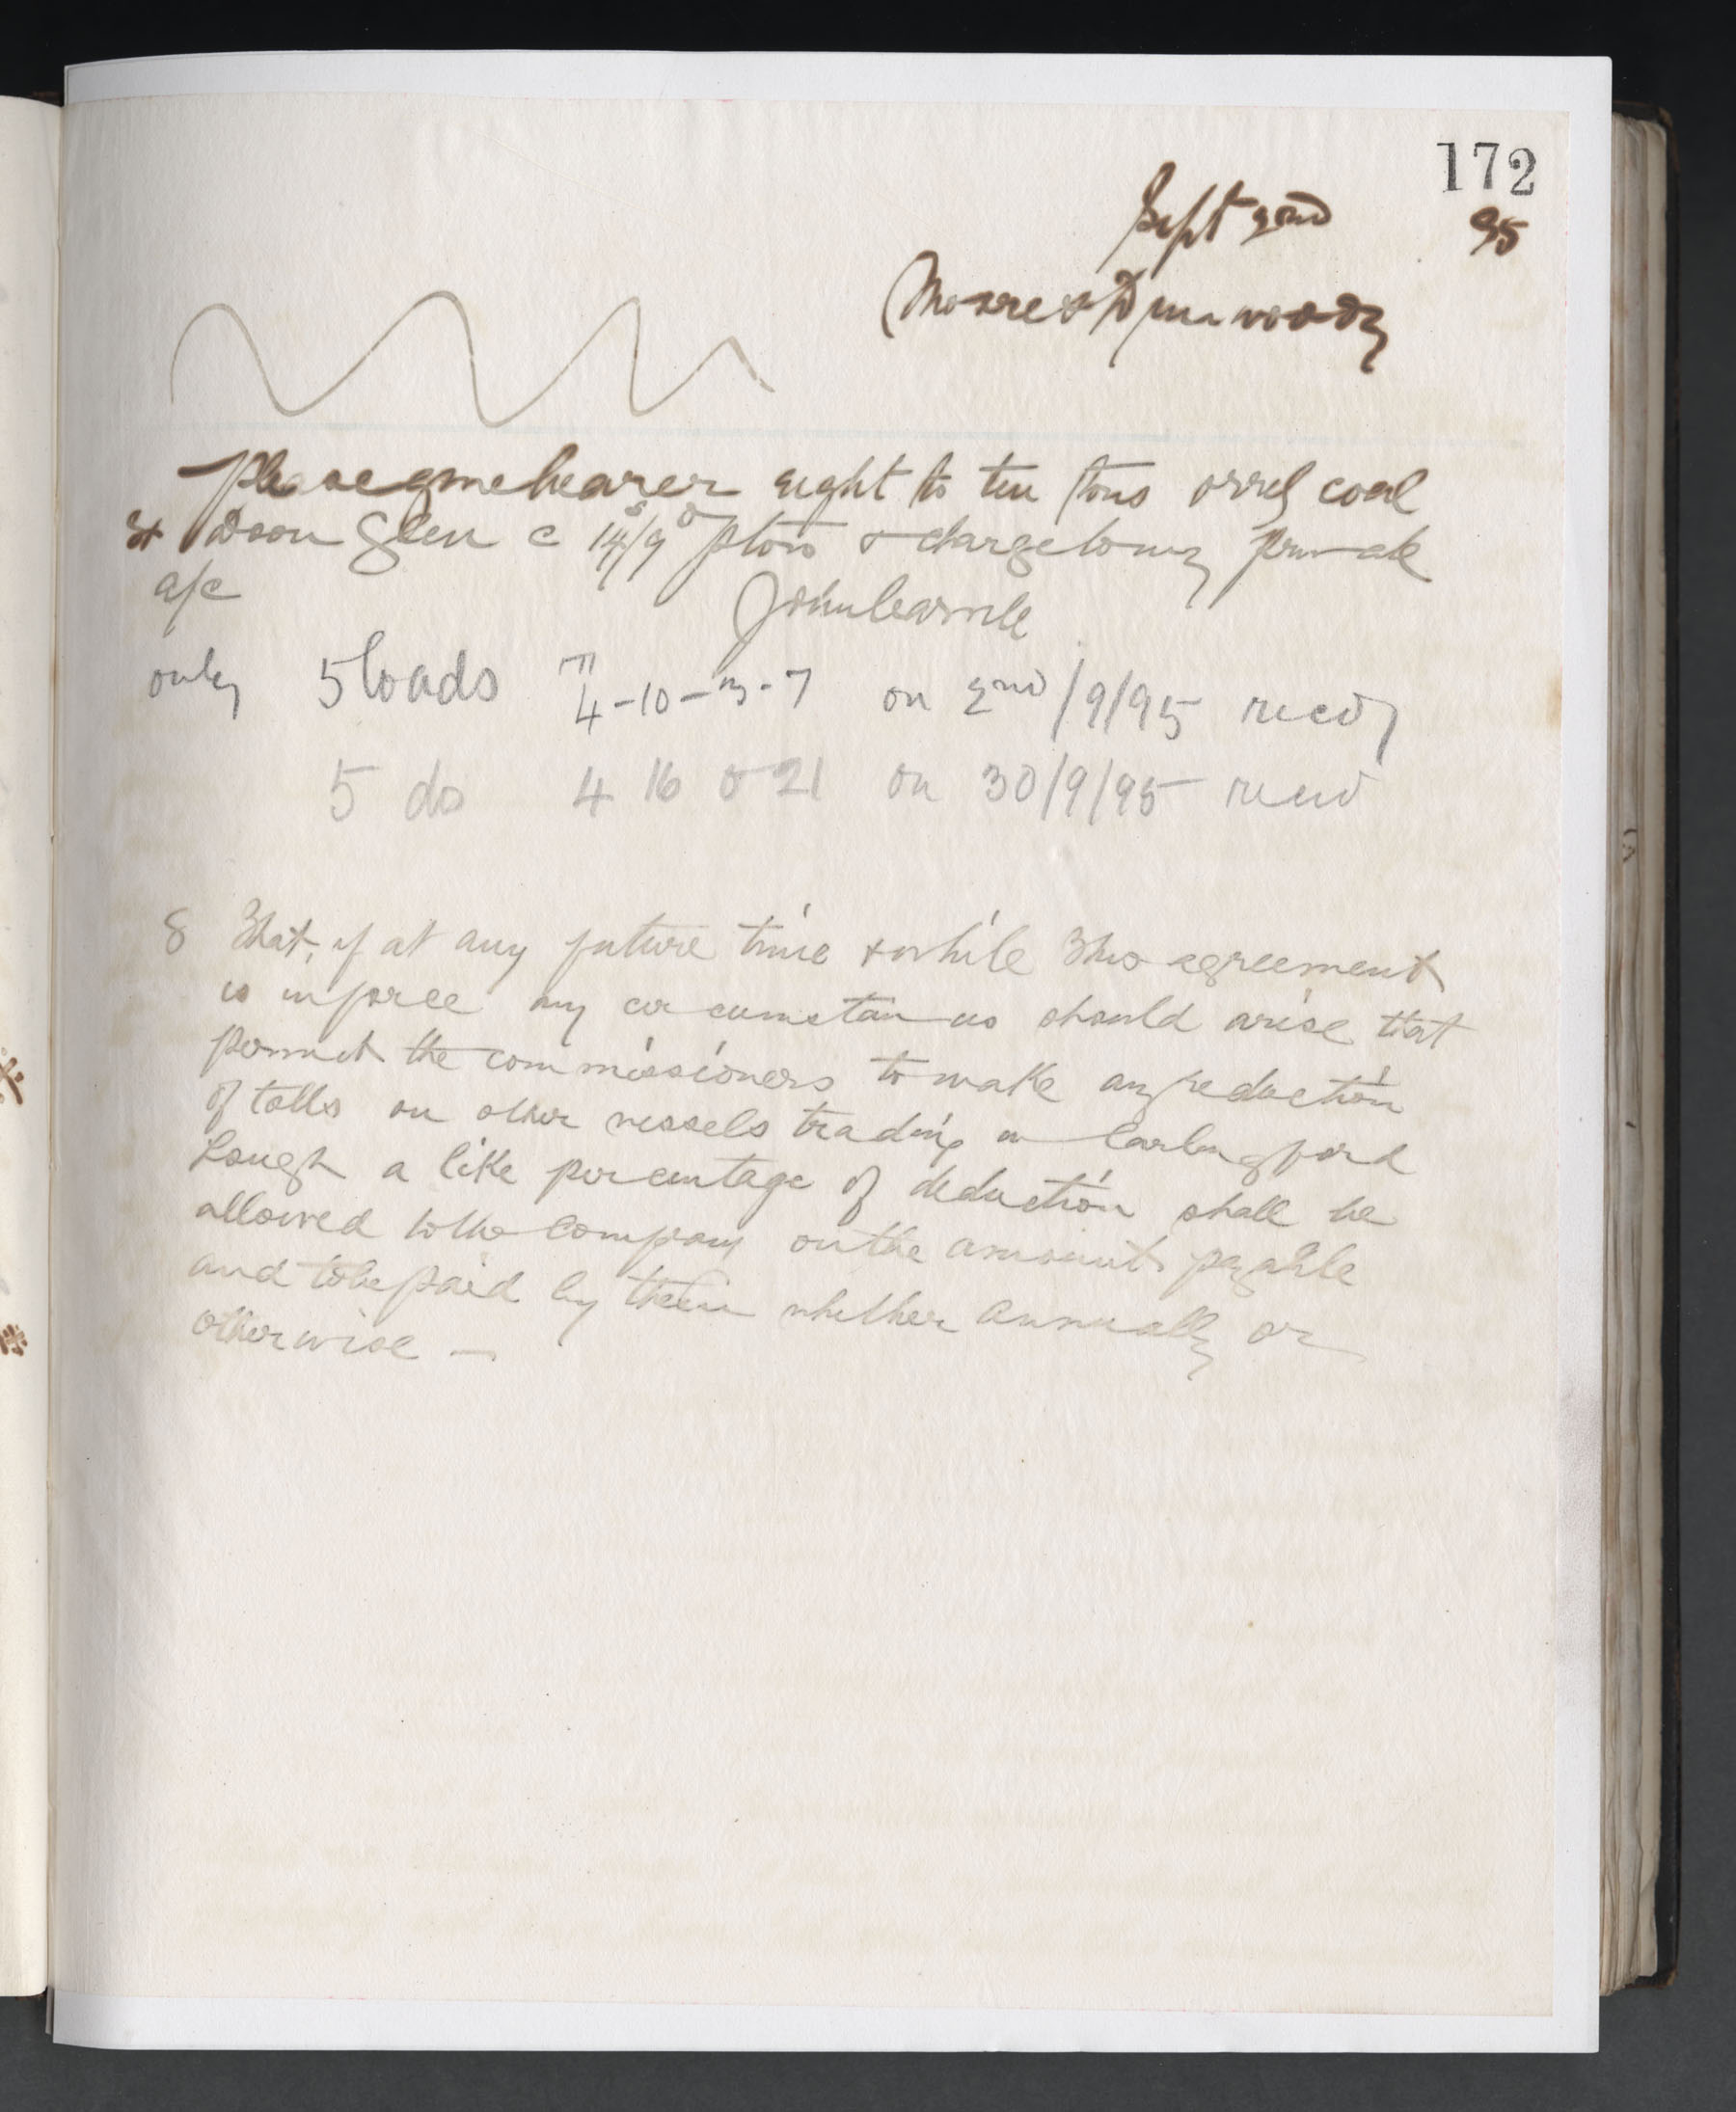 172
Sept 2nd 95
Moore & Dinwoody
Please give bearer eight to ten tons orrel coal
ex Doon Glen @ 14s/9d p ton & charge to my private
a/c
John
only 5 loads T 4-10-3-7 on 2nd/9/95 recd
5 do 4 16 0 21 on 30/9/95 recd
8 That, if at any future time & while this agreement
is in force any circumstances should arise that
permit the commissioners to make any reduction
of tolls on other vessels trading in Carlingford
Lough a like percentage of deduction shall be
allowed to the Company on the amount payable
and to be paid by them whether annually or
otherwise —